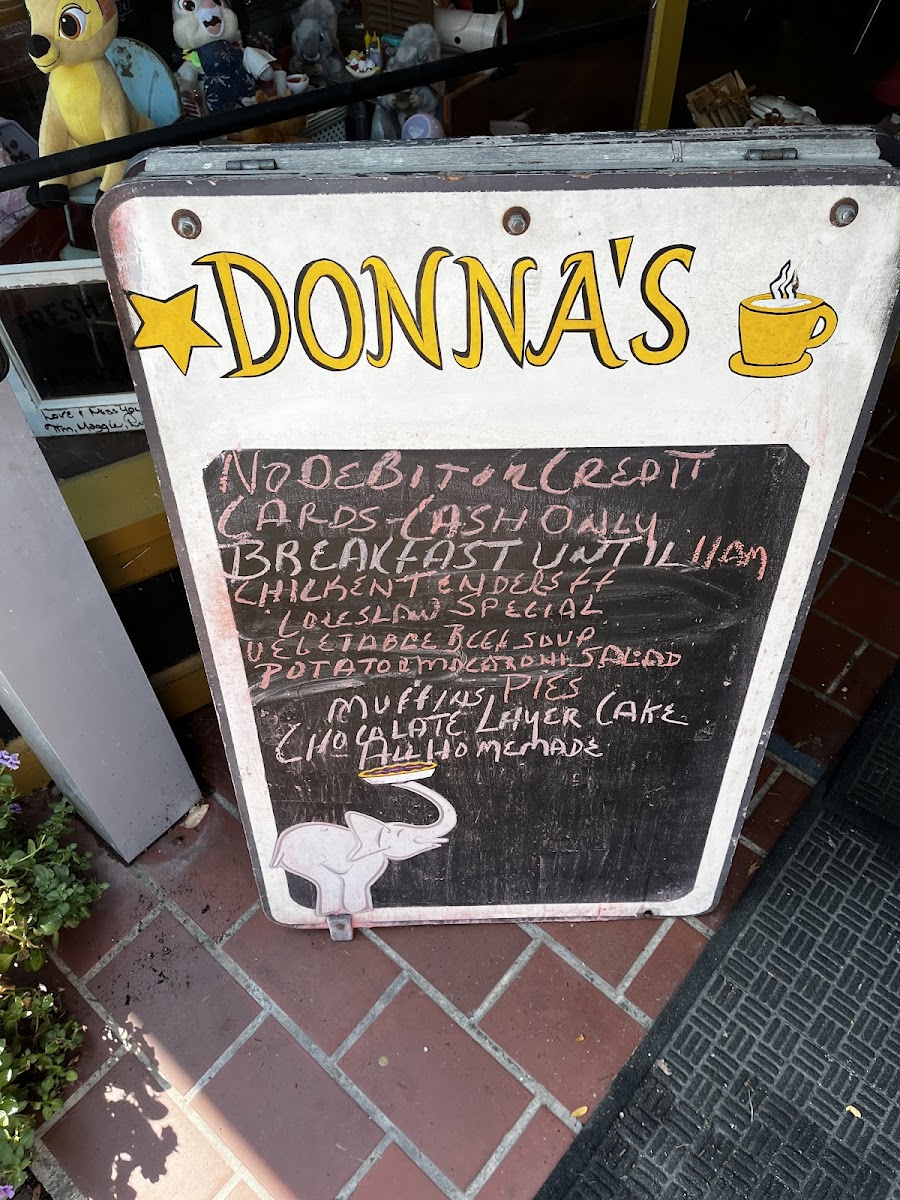 DONNA'S
NO DEBIT OR CREDIT
CARDS - CASH ONLY
BREAKFAST UNTIL 11AM
CHICKEN TENDERS FF
COLESLAW SPECIAL
VEGETABLE BEEF SOUP
POTATO OR MACARONI SALAD
MUFFINS, PIES
CHOCALATE LAYER CAKE
ALL HOMEMADE
FRESH
Love + Miss You
Tim, Maggie,